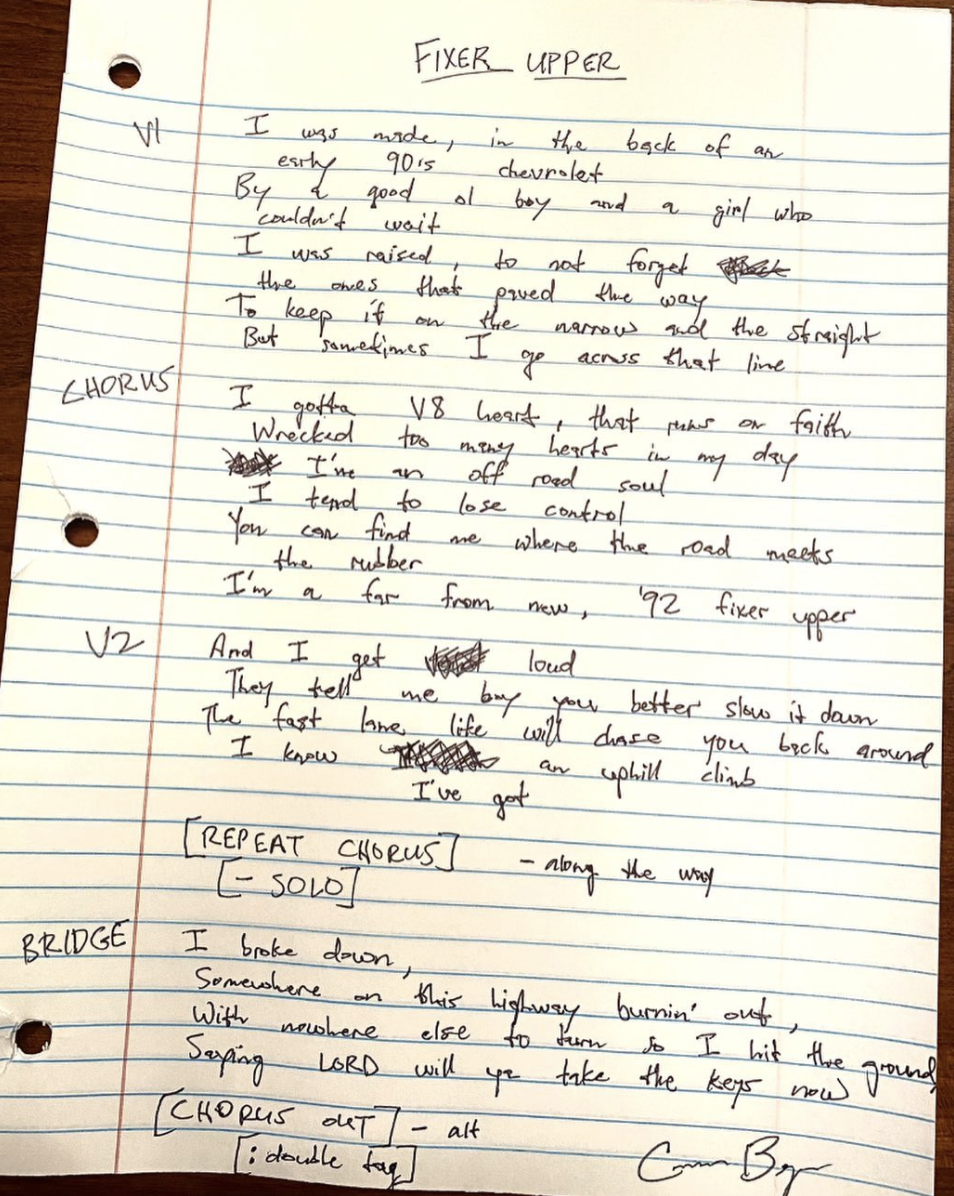 FIXER UPPER
V1 I was made, in the back of an
early 90's chevrolet
By a good ol boy and a girl who
couldn't wait
I was raised, to not forget
the ones that paved the way
To keep it on the narrow and the straight
But sometimes I go across that line
CHORUS I gotta V8 heart, that runs on faith
Wrecked too many hearts in my day
I'm an off road soul
I tend to lose control
You can find me where the road meets
the rubber
I'm a far from new, '92 fixer upper
V2 And I get loud
They tell me boy you better slow it down
The fast lane life will chase you back around
I know an uphill climb
I've got
[REPEAT CHORUS] - along the way
[- SOLO]
BRIDGE I broke down,
Somewhere on this highway burnin' out,
With nowhere else to turn so I hit the ground,
Saying LORD will ya take the keys now
[CHORUS OUT] - alt
[: double tag]